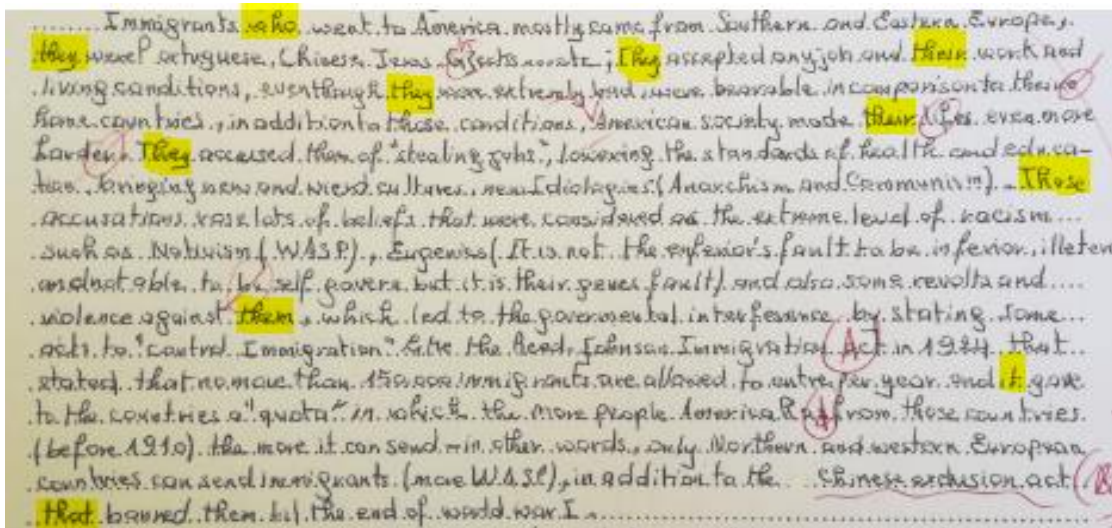 Immigrants who went to America mostly came from Southern and Eastern Europe,
they were Portuguese, Chinese Jews ; They accepted any job and their work and
living conditions, eventhough they were extremely bad, were bearable in comparison to their
home countries, in addition to those conditions, American society made their lifes even more
harder. They accused them of "stealing jobs", lowering the standards of health and educa-
tion, bringing new and wierd cultures, new Idiologies (Anarchism and Communism). Those
accusations rose lots of beliefs that were considered as the extreme level of racism
such as Nativism (WASP), Eugenics (It is not the inferior's fault to be inferior, illeter
and not able to be self govern but it is their genes fault) and also some revolts and
violence against them, which led to the governmental interference by stating some
acts to "control Immigration" like the Reed Johnson Immigration Act in 1924 that
stated that no more than 150.000 immigrants are allowed to entre per year and it gave
to the countries a "quota" in which the more people America had from those countries
(before 1910) the more it can send - in other words, only Northern and western European
countries can send immigrants (more WASP), in addition to the Chinese exclusion act
that banned them til the end of world war I